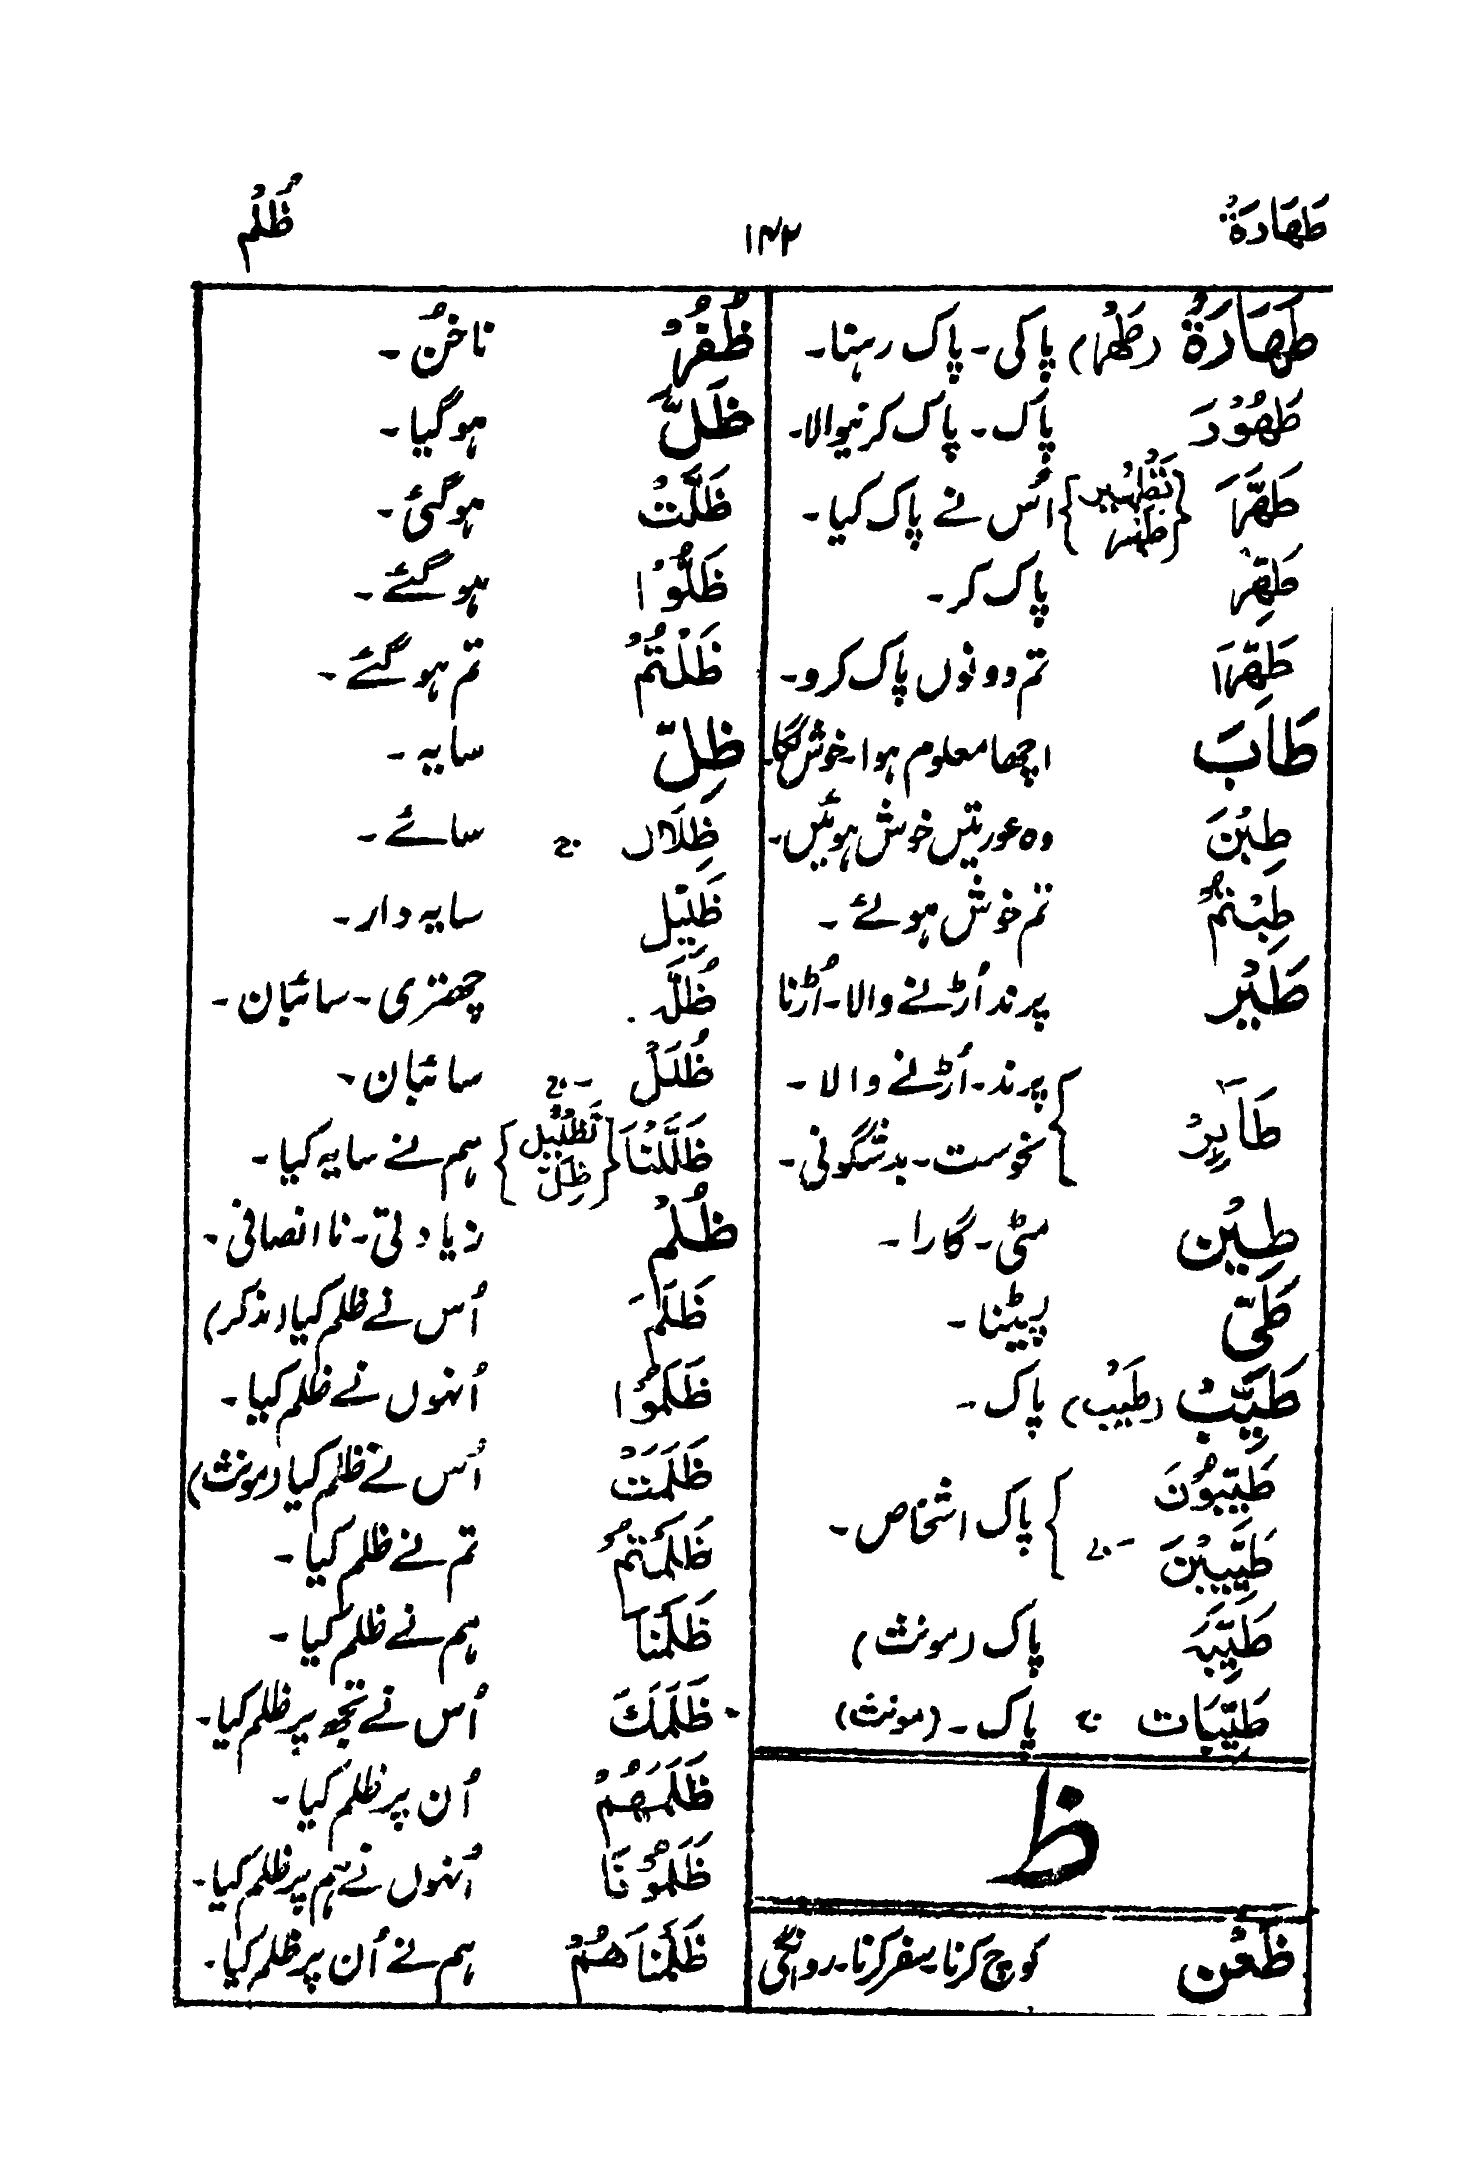 طَهَارَةٌ
۱۴۲
ظُلْم
طَهَارَةٌ (طَهُرَ) پاکی۔ پاک رہنا۔
طَهُوْرَ پاک۔ پاک کرنیوالا۔
طَهَّرَ {تَطْهِيْر طَهَّرَ} اُس نے پاک کیا۔
طَهِّرْ پاک کر۔
طَهِّرَا تم دونوں پاک کرو۔
طَابَ اچھا معلوم ہوا۔ خوش لگا۔
طِبْنَ وہ عورتیں خوش ہوئیں۔
طِبْتُمْ تم خوش ہوئے۔
طَيْر پرند اُڑنے والا۔ اُڑنا
طَآئِرٌ } پرند۔ اُڑنے والا۔
نحوست۔ بدشگونی۔
طِيْن مٹی۔ گارا۔
طَيّ لپیٹنا۔
طَيِّبْ (طَيِّبْ) پاک۔
طَيِّبُوْنَ
طَيِّبِيْنَ } پاک اشخاص۔
طَيِّبَہ پاک (مونث)
طَيِّبَات ج پاک۔ (مونث)
ظ
ظَعْن کوچ کرنا۔ سفر کرنا۔ روانگی
ظُفُرْ ناخن۔
ظَلَّ ہوگیا۔
ظَلَّتْ ہوگئی۔
ظَلُّوْا ہوگئے۔
ظَلْتُمْ تم ہوگئے۔
ظِلّ سایہ۔
ظِلَال ج سائے۔
ظَلِيْل سایہ دار۔
ظُلَّہ چھتری۔ سائبان۔
ظُلَلْ ج سائبان۔
ظَلَّلْنَا {تَظْلِيْل ظِلّ} ہم نے سایہ کیا۔
ظُلْم زیادتی۔ ناانصافی۔
ظَلَمَ اُس نے ظلم کیا (مذکر)
ظَلَمُوْا اُنہوں نے ظلم کیا۔
ظَلَمَتْ اُس نے ظلم کیا (مونث)
ظَلَمْتُمْ تم نے ظلم کیا۔
ظَلَمْنَا ہم نے ظلم کیا۔
ظَلَمَكَ اُس نے تجھ پر ظلم کیا۔
ظَلَمَهُمْ اُن پر ظلم کیا۔
ظَلَمُوْنَا اُنہوں نے ہم پر ظلم کیا۔
ظَلَمْنَاهُمْ ہم نے اُن پر ظلم کیا۔